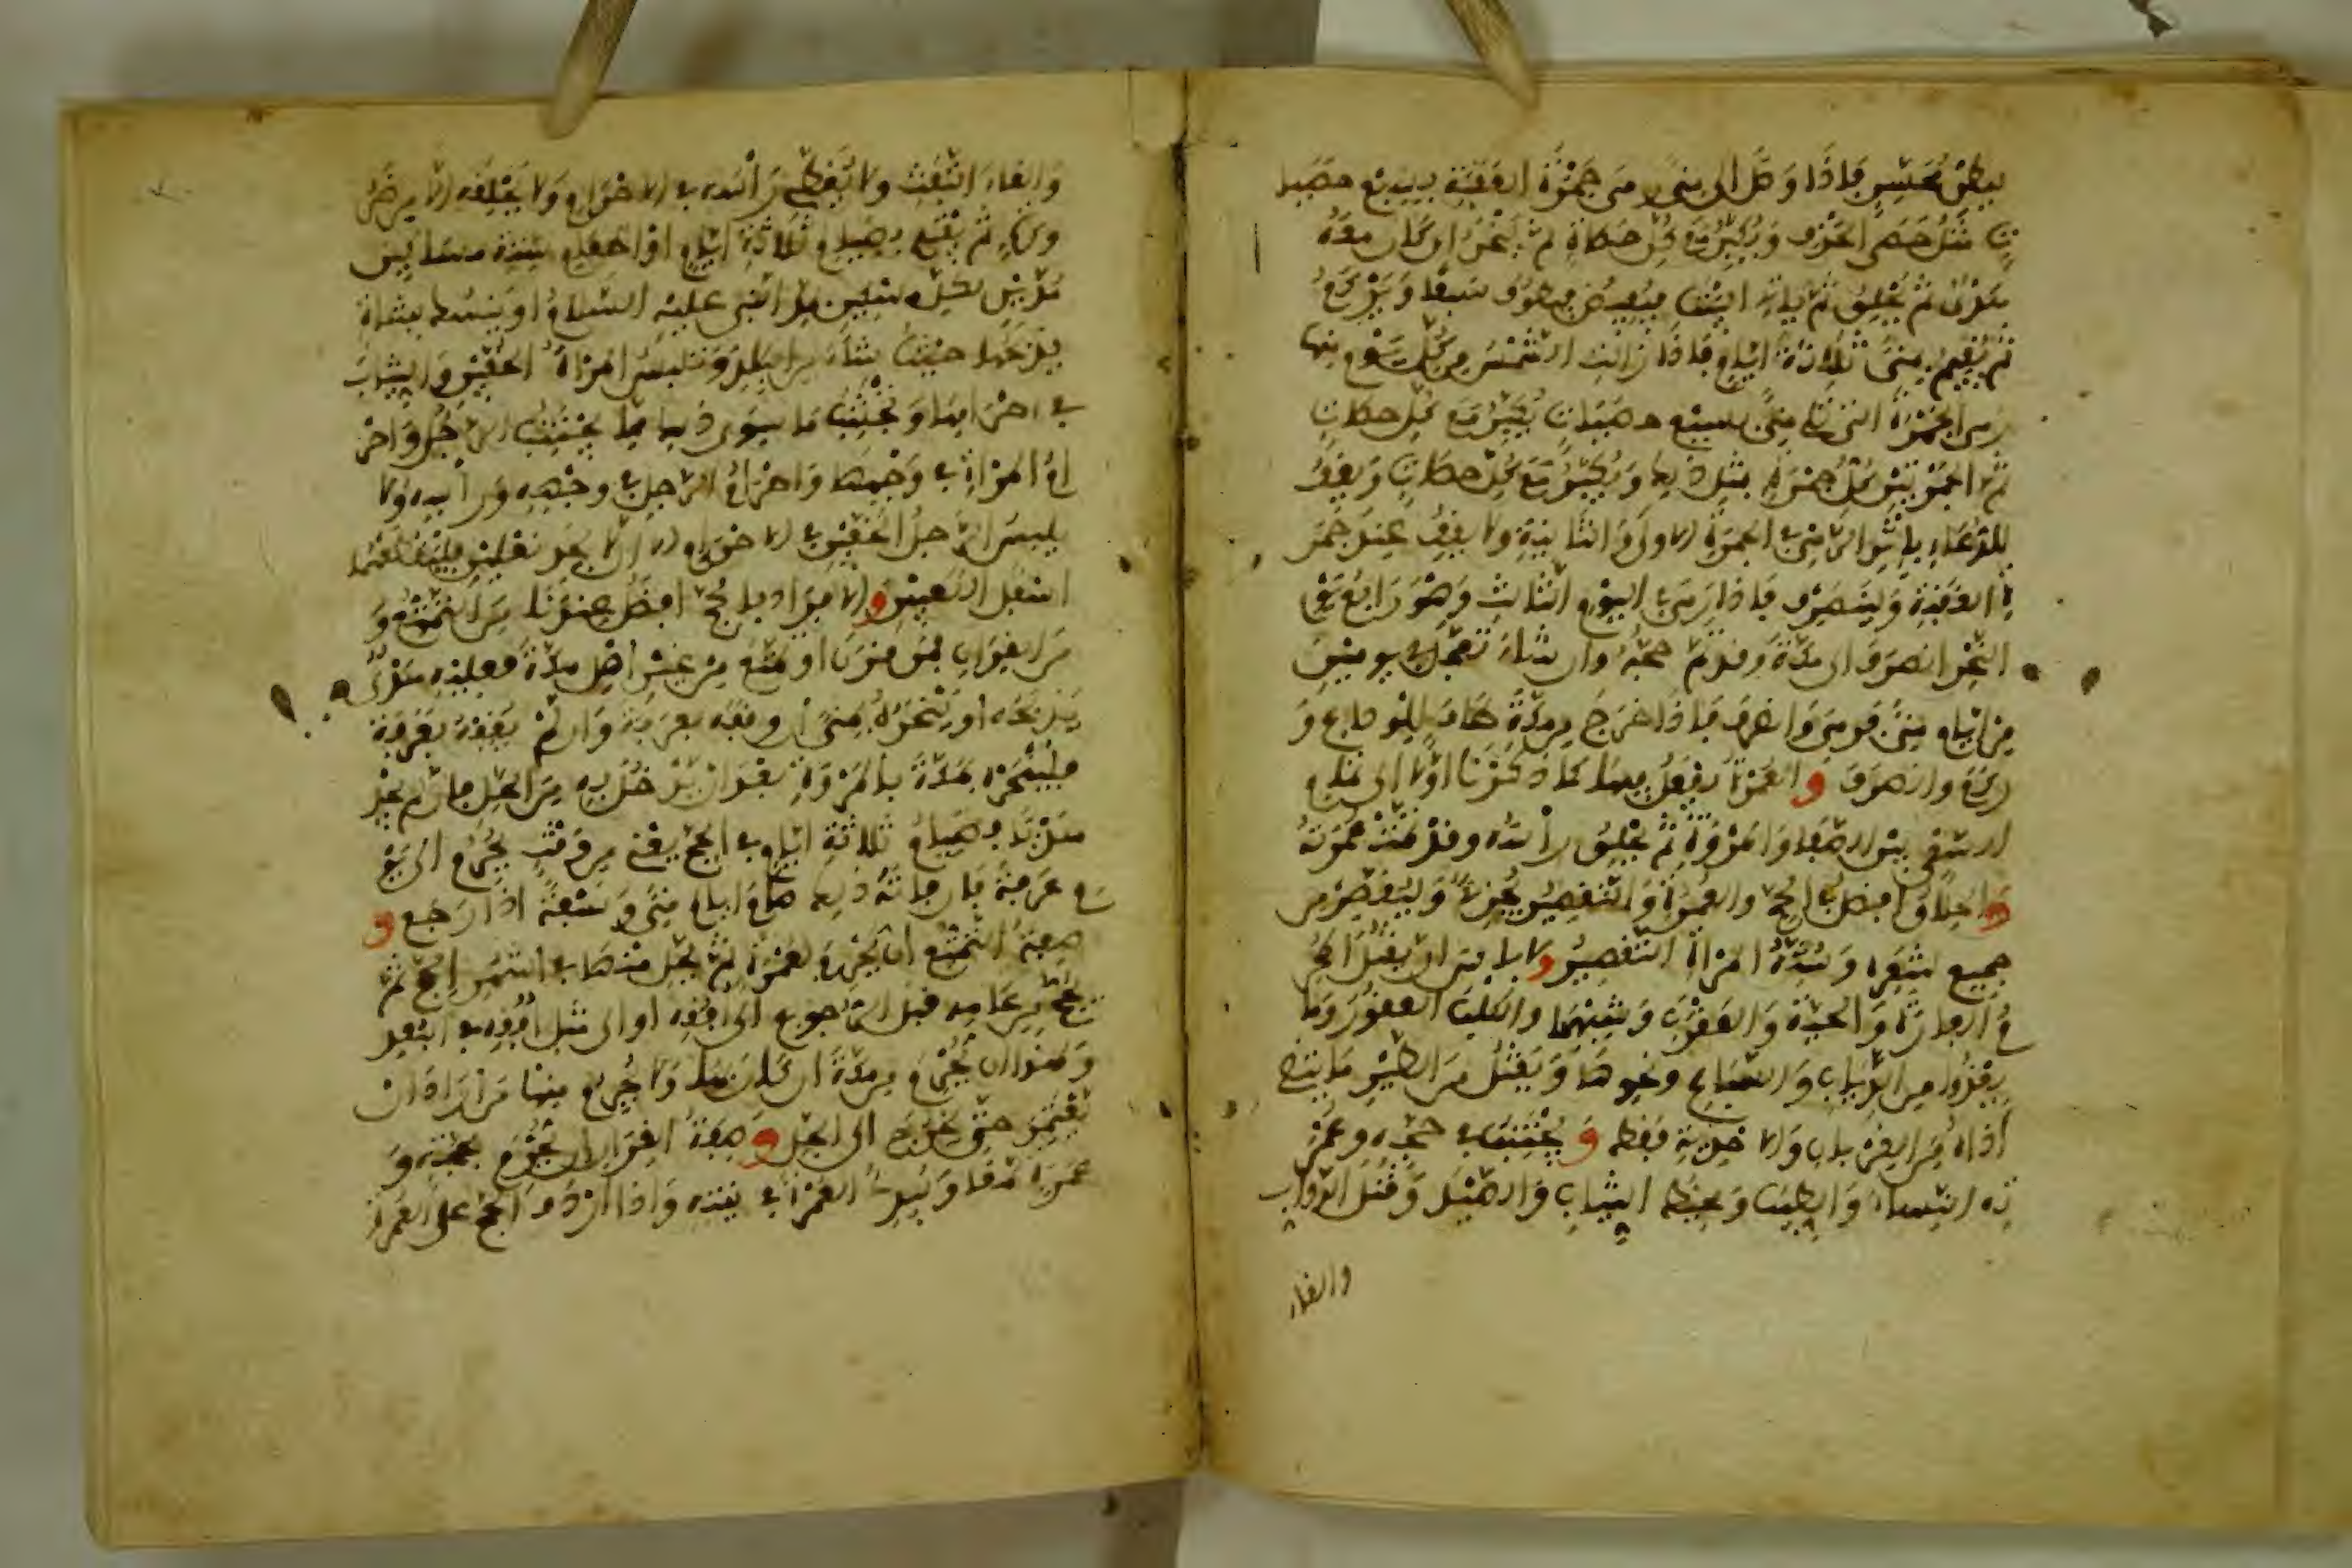 ببطن محسر فاذا وصل الى منى رمى جمرة العقبة بسبع حصيا
ت مثل حصى الخذف ويكبر مع كل حصاة ثم ينحر ان كان معه
هدي ثم يحلق ثم ياتي البيت فيفيض فيطوف سبعا ويركع
ثم يقيم بمنى ثلاثة ايام فاذا زالت الشمس من كل يوم منها
رمى الجمرة التي تلي منى بسبع حصيات يكبر مع كل حصاة
ثم الجمرتين كل جمرة بمثل ذلك ويكبر مع كل حصاة ويقف
للدعاء باثر الرمي في الجمرة الاولى والثانية ولا يقف عند جمر
ة العقبة ولينصرف فاذا رمى في اليوم الثالث وهو رابع يوم
النحر انصرف الى مكة وقد تم حجه وان شاء تعجل في يومين
من ايام منى فرمى وانصرف فاذا خرج من مكة طاف للوداع و
ركع وانصرف والعمرة يفعل فيها كما ذكرنا اولا الى تمام
السعي بين الصفا والمروة ثم يحلق راسه وقد تمت عمرته
والحلاق افضل في الحج والعمرة والتقصير يجزئ وليقصر من
جميع شعره وسنة المراة التقصير ولا باس ان يقتل المحر
م الفارة والحية والعقرب وشبهها والكلب العقور وما
يعدوا من الذياب والسباع ونحوها ويقتل من الطير ما يتقى
اذاه من الغربان والاحدية فقط ويجتنب في حجه وعمر
ته النساء والطيب ومخيط الثياب والصيد وقتل الدواب
والقاء
والقاء التفث ولا يغطي راسه في الاحرام ولا يحلقه الا من ضر
ورة ثم يفتدي بصيام ثلاثة ايام او اطعام ستة مساكين
مدين لكل مسكين بمد النبي عليه السلام او ينسك بشاة
يذبحها حيث شاء من البلاد وتلبس المراة الخفين والثياب
في احرامها وتجتنب ما سوى ذلك مما يجتنبه الرجل واحر
ام المراة في وجهها وكفيها واحرام الرجل في وجهه وراسه ولا
يلبس الرجل الخفين في الاحرام الا ان لا يجد نعلين فليقطعهما
اسفل الكعبين والافراد بالحج افضل عندنا من التمتع و
من القران فمن قرن او تمتع من غير اهل مكة فعليه هدي
يذبحه او ينحره بمنى ان وقفه بعرفة وان لم يقفه بعرفة
فلينحره بمكة بالمروة بعد ان يدخل به من الحل فان لم يجد
هديا فصيام ثلاثة ايام في الحج يعني من وقت يحرم الى يو
م عرفة فان فاته ذلك صام ايام منى وسبعة اذا رجع و
صفة التمتع ان يحرم بعمرة ثم يحل منها في اشهر الحج ثم
يحج من عامه قبل الرجوع الى افقه او الى مثل افقه في البعد
ولهذا ان يحرم من مكة ان كان بها ولا يحرم منها من اراد ان
يعتمر حتى يخرج الى الحل وصفة القران ان يحرم بحجة و
عمرة معا ويبدا بالعمرة في نيته واذا اردف الحج على العمرة